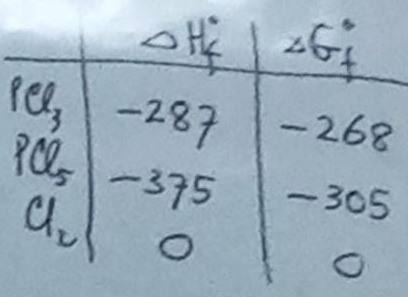 ΔH°f ΔG°f
PCl₃ -287 -268
PCl₅ -375 -305
Cl₂ 0 0